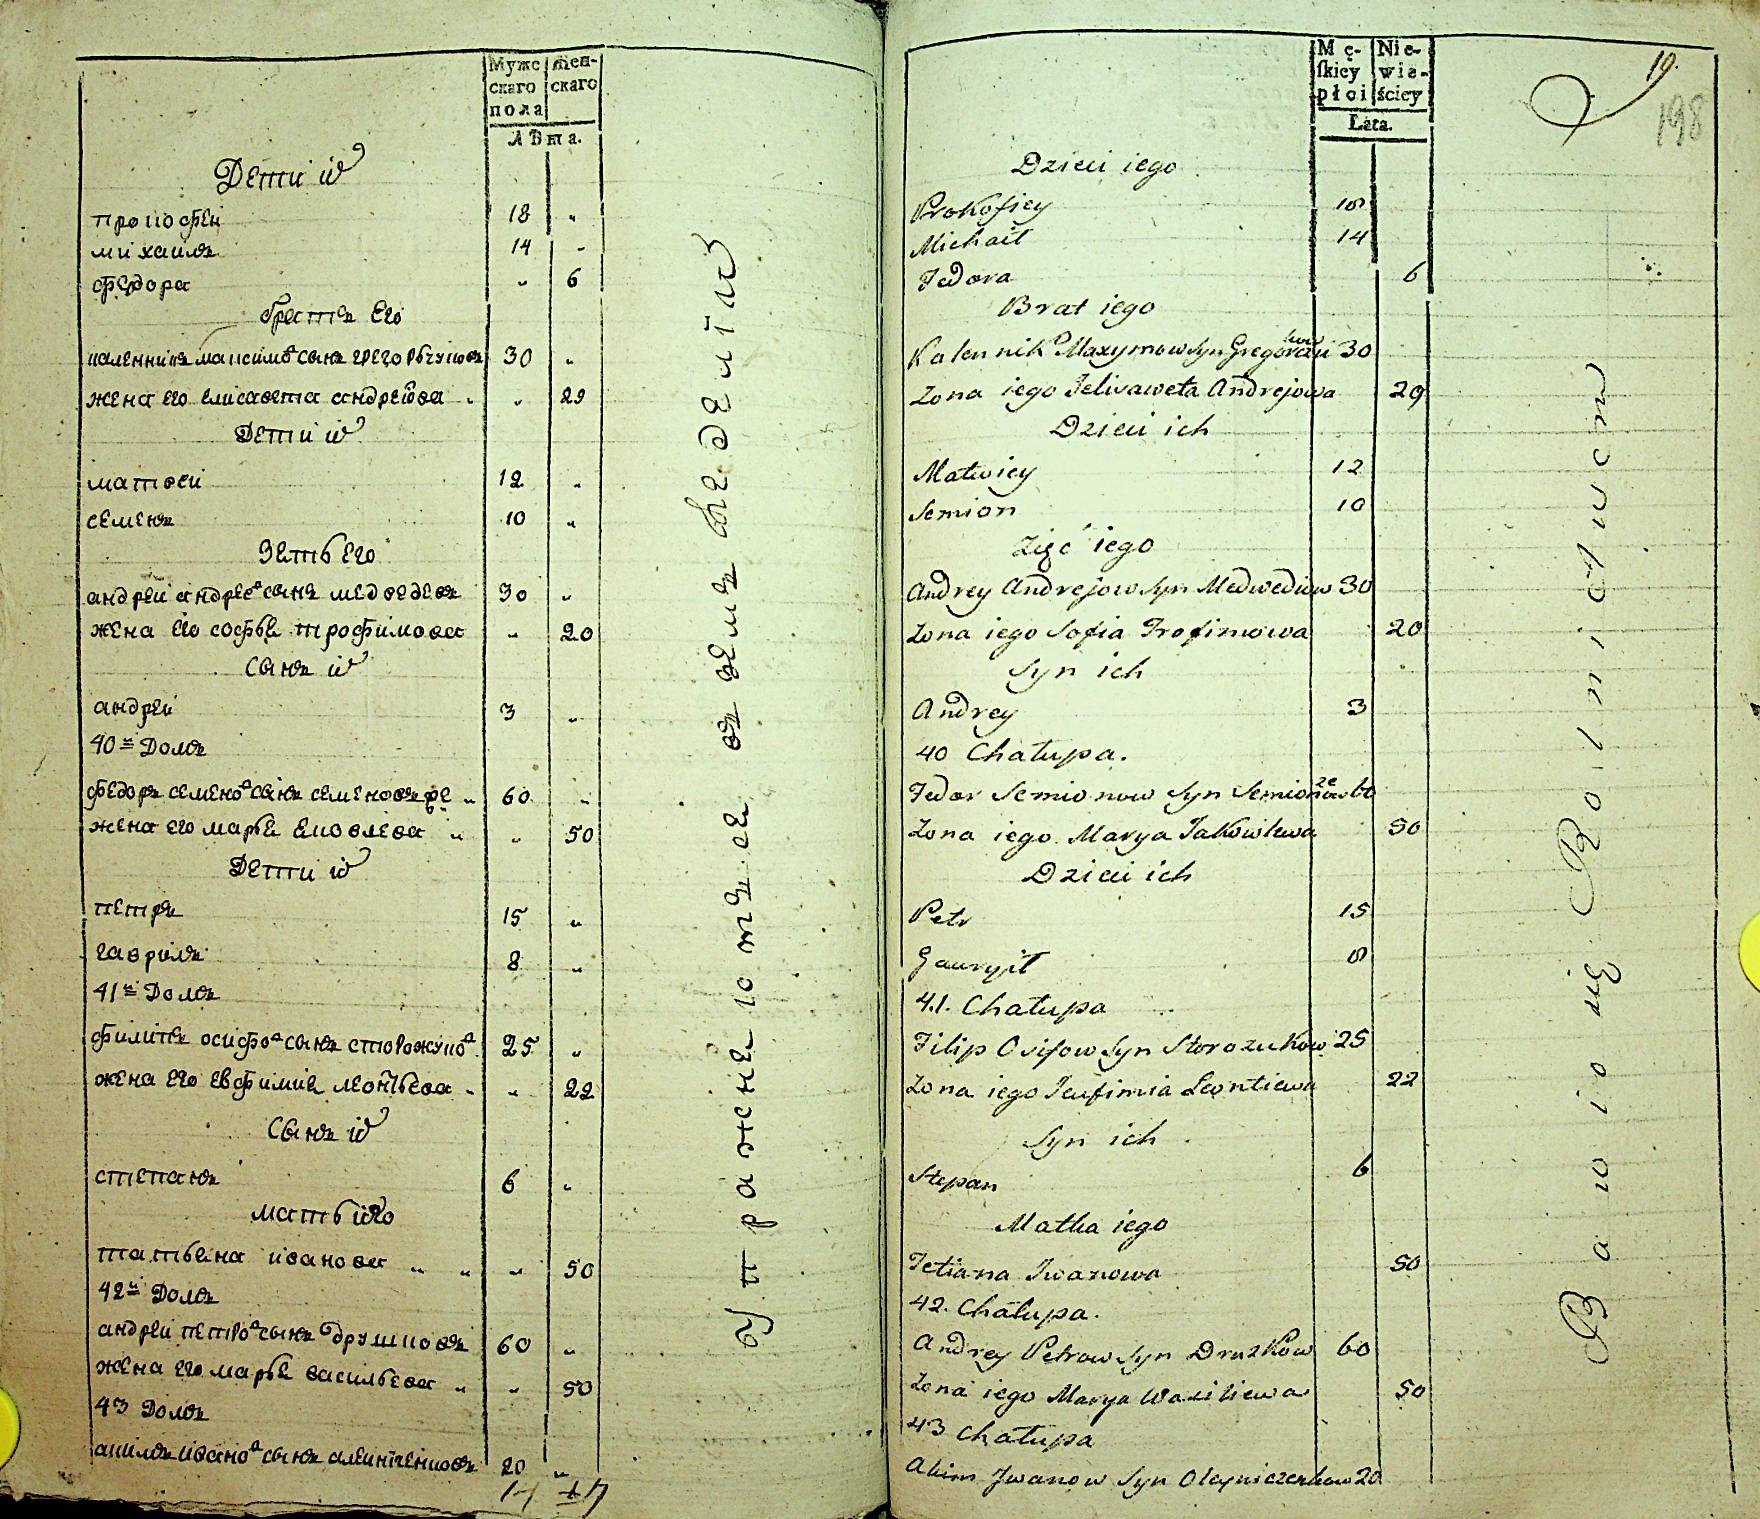 Мужс- Жен-
скаго скаго
пола
Лѣта.
Дети иⷯ
прокофеи 18 "
михаилъ 14 "
федора " 6
братъ его
каленникъ максимоⷡ сынъ грегорѣчуковъ 30 "
жена его елисавета андреѣва " 29
Дети иⷯ
матвеи 12 "
семенъ 10 "
Зеть его
андреи андреевⷡ сынъ медведевъ 30 "
жена его софья трофимова " 20
сынъ иⷯ
андреи 3 "
40й Домъ
федоръ семеноⷡ сынъ семеновъ 60 "
жена его марья яковлева " 50
Дети иⷯ
петръ 15 "
гаврилъ 8 "
41й Домъ
филипъ осифоⷡ сынъ сторожукоⷡ 25 "
жена его евфимия леонтьева " 22
сынъ иⷯ
степанъ 6 "
мать его
татьяна иванова " 50
42й Домъ
андреи петроⷡ сынъ друшковъ 60 "
жена его марья васильева " 50
43 Домъ
акимъ иваноⷡ сынъ алеинченковъ 20 "
17 7
упражняютъся въ земъледелия
19.
198
Mę- Nie-
skiey wie-
płoi ściey
Lata.
Dzieci iego
Prokofiey 18
Michaił 14
Fedora 6
Brat iego
Kalennik Maxymow Syn Gregorczuków 30
Żona iego Jelisaweta Andrejowa 29
Dzieci ich
Matwiey 12
Semion 10
Zięć iego
Andrey Andrejow Syn Medwediow 30
Żona iego Sofia Trofimowa 20
Syn ich
Andrey 3
40 Chałupa.
Fedor Semionow Syn Semionow 60
Żona iego Marya Jakowlewa 50
Dzieci ich
Petr 15
Gawryił 8
41. Chałupa
Filip Osifow Syn Storozukow 25
Żona iego Jeufimia Leontiewa 22
Syn ich
Stepan 6
Matka iego
Tetiana Iwanowa 50
42. Chałupa.
Andrey Petrow Syn Druzkow 60
Żona iego Marya Wasiliewa 50
43 Chałupa
Akim Iwanow Syn Oleyniczenkow 20
Bawio się Rolnictwem